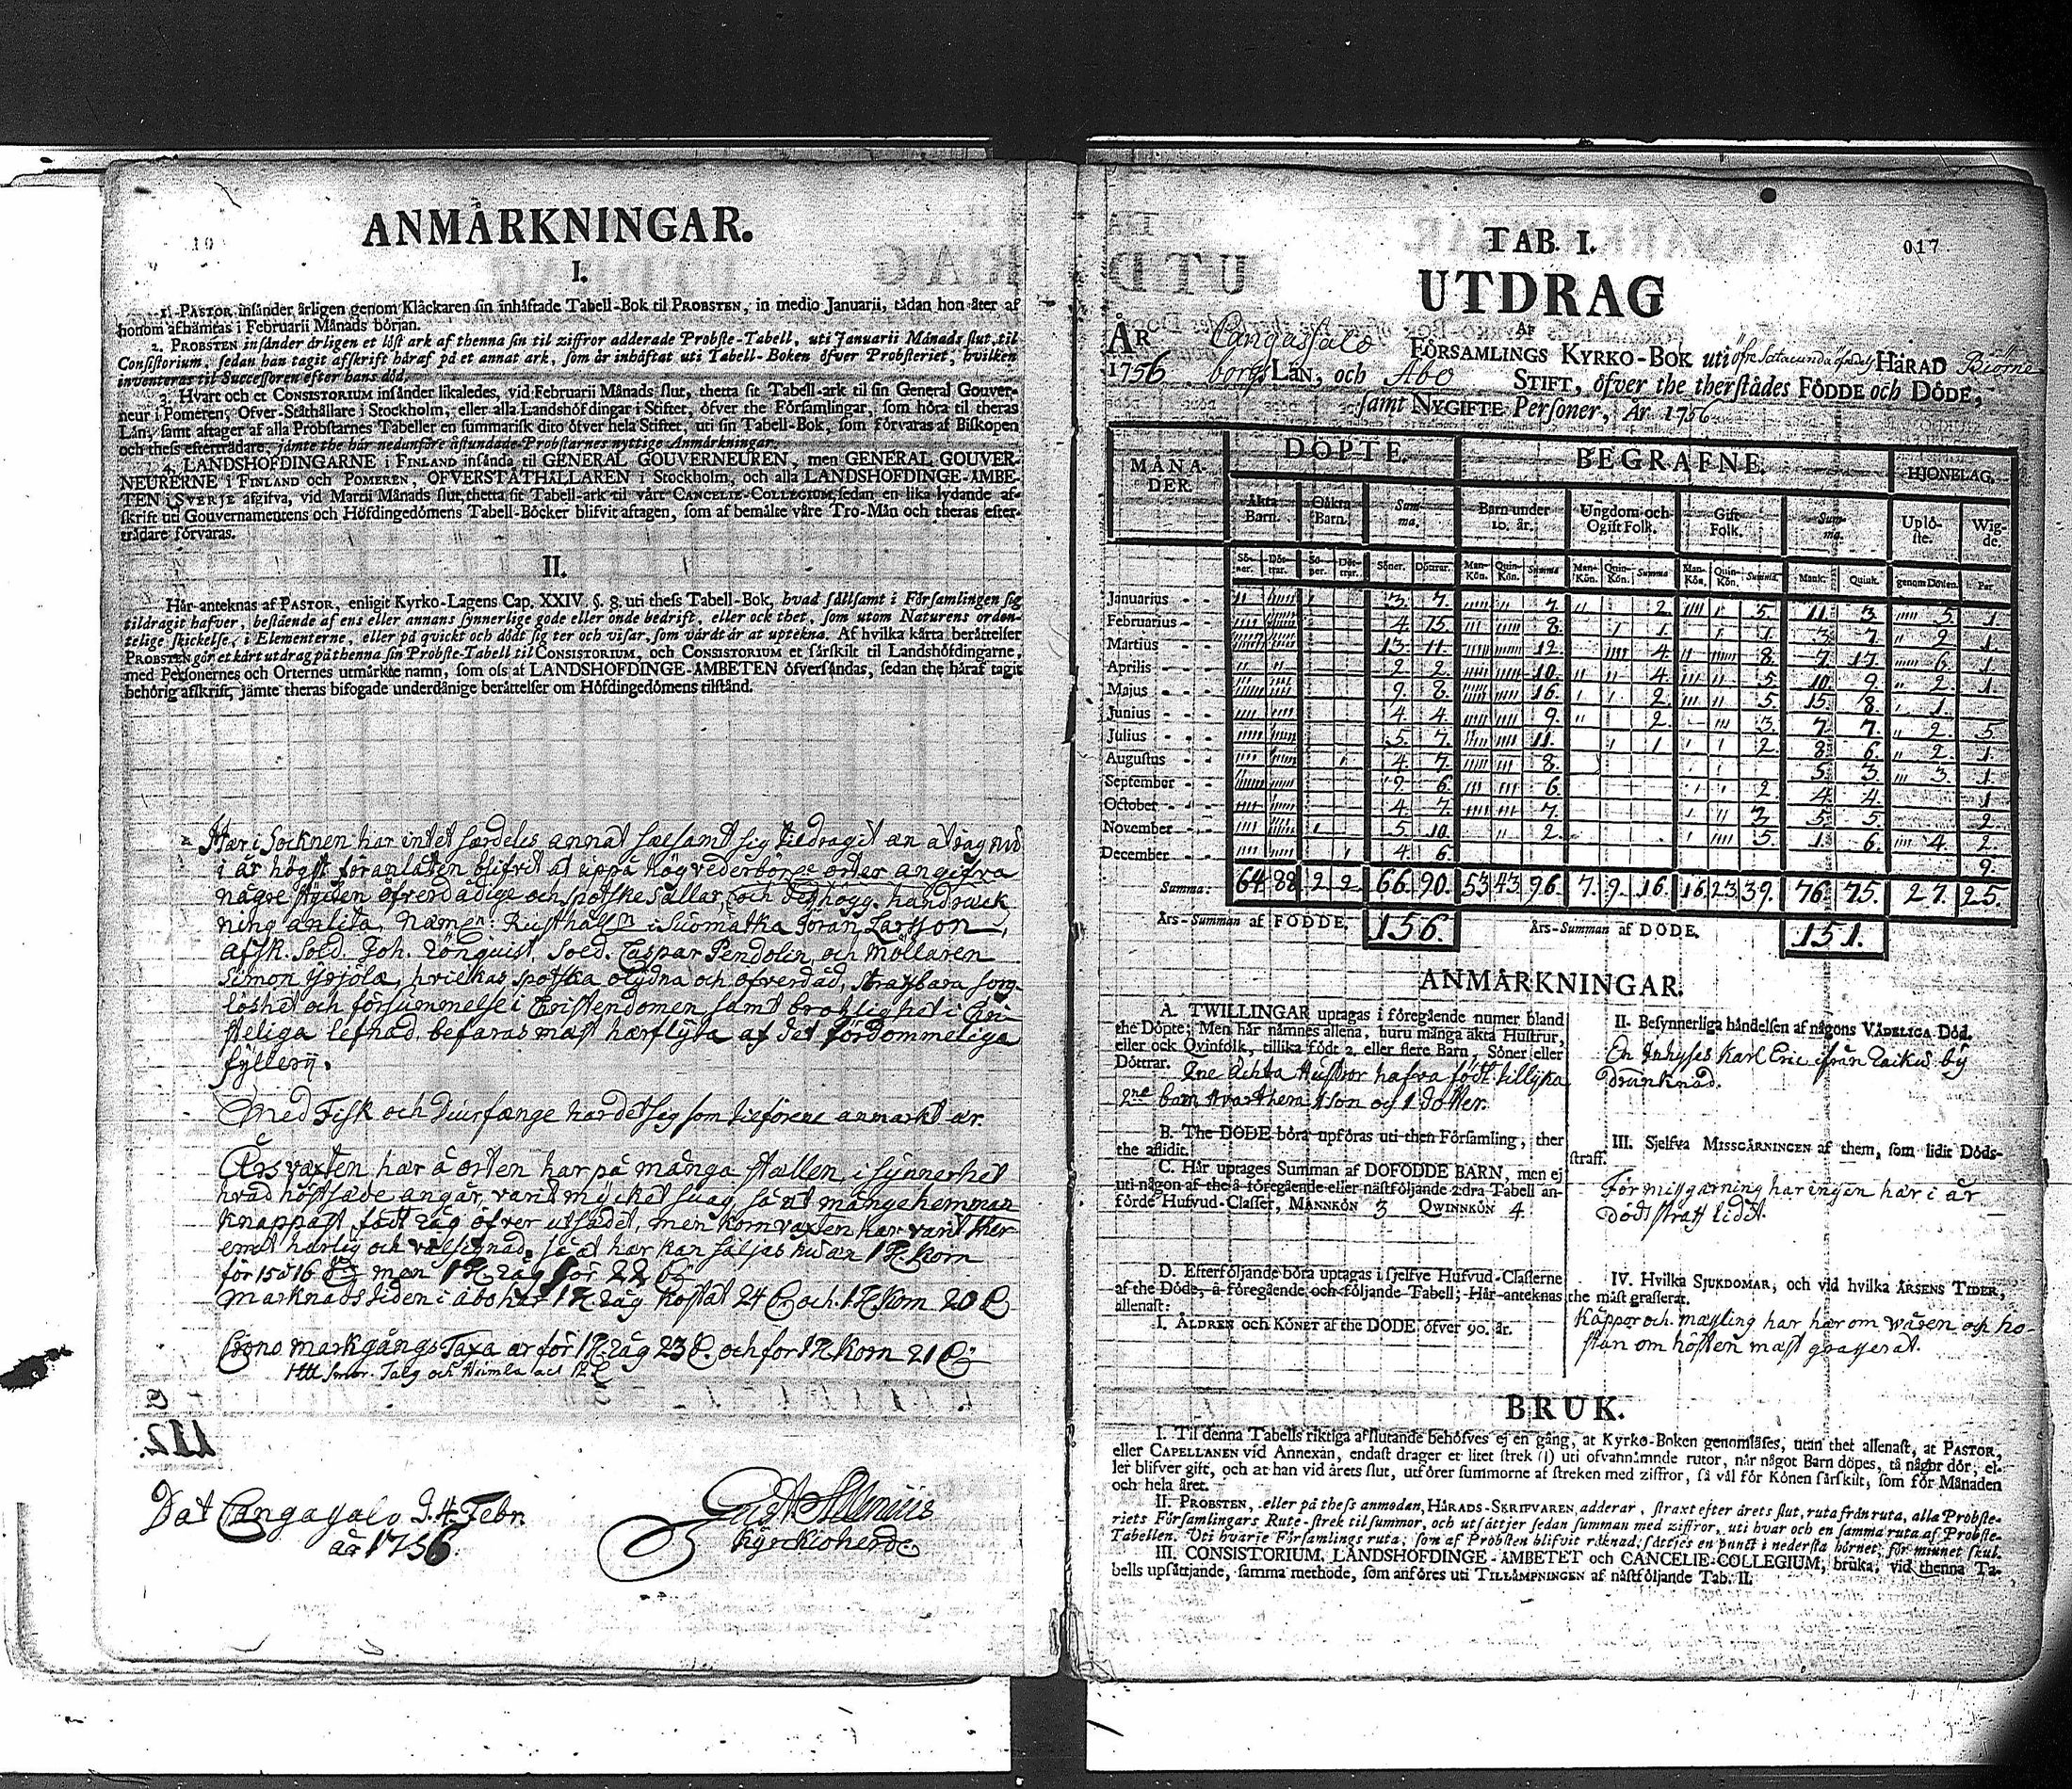 10
ANMÄRKNINGAR.
I.
1. PASTOR insänder årligen genom Klåckaren sin inhäftade Tabell-Bok til PROBSTEN, in medio Januarii, tådan hon åter af
honom afhämtas i Februarii Månads början.
2. PROBSTEN insänder årligen et löst ark af thenna sin til ziffror adderade Probste-Tabell, uti Januarii Månads slut, til
Consistorium, sedan han tagit afskrift häraf på et annat ark, som är inhäftat uti Tabell-Boken öfver Probsteriet, hvilken
inventeras til Successoren efter hans död.
3. Hvart och et CONSISTORIUM insänder likaledes, vid Februarii Månads slut, thetta sit Tabell-ark til sin General Gouver-
neur i Pomeren, Öfver-Ståthållare i Stockholm, eller alla Landshöfdingar i Stiftet, öfver the Församlingar, som höra til theras
Län, samt aftager af alla Probstarnes Tabeller en summarisk dito öfver hela Stiftet, uti sin Tabell-Bok, som förvaras af Biskopen
och thess efterträdare, jämte the här nedanföre åstundade Probstarnes nyttige Anmärkningar.
4. LANDSHÖFDINGARNE i FINLAND insända til GENERAL GOUVERNEUREN, men GENERAL GOUVER-
NEURERNE i FINLAND och POMEREN, ÖFVERSTÅTHÅLLAREN i Stockholm, och alla LANDSHÖFDINGE-ÄMBE-
TEN i SVERJE afgifva, vid Martii Månads slut, thetta sit Tabell-ark til vårt CANCELIE-COLLEGIUM, sedan en lika lydande af-
skrift uti Gouvernamentens och Höfdingedömens Tabell-Böcker blifvit aftagen, som af bemälte våre Tro-Män och theras efter-
trädare förvaras.
II.
Här anteknas af PASTOR, enligit Kyrko-Lagens Cap. XXIV. §. 8. uti thess Tabell-Bok, hvad sällsamt i Församlingen sig
tildragit hafver, bestående af ens eller annans synnerlige gode eller onde bedrift, eller ock thet, som utom Naturens orden-
telige skickelse, i Elementerne, eller på quickt och dödt sig ter och visar, som värdt är at uptekna. Af hvilka kårta berättelser
PROBSTEN gör et kårt utdrag på thenna sin Probste-Tabell til CONSISTORIUM, och CONSISTORIUM et särskilt til Landshöfdingarne,
med Personernes och Orternes utmärkte namn, som oss af LANDSHÖFDINGE-ÄMBETEN öfversändas, sedan the häraf tagit
behörig afskrift, jämte theras bifogade underdånige berättelser om Höfdingedömens tilstånd.
Här i Socknen har intet særdeles annat sælsamt sig tildragit än at jag nu
i år högst föranlåten blifvit at uppå högvederbörl. orter angifva
några stycken öfverdådige och spotske sällar, och
ning anlita, næmn. Rusthåll. i Suomatka Jöran Larsson,
afsk. Sold. Joh. Lönquist, Sold. Caspar Pendolin, och Möllaren
Simon Yrjölä, hvilkas spotska olydna och öfverdåd, straffbara som-
löshet och försummelse i Christendomen samt brotslighet i Chri-
steliga lefnad, befaras mäst härflyta af det fördömmeliga
fylleri.
Med Fisk och Diurfænge har det sig som tilförene anmärkt är.
Årsvæxten här å orten har på många stællen, i synnerhet
hvad höstsæde angår, varit mycket svag, så at månge hemman
knappast födt råg öfver utsädet, men kornvæxten har varit ther-
emot härlig och välsignad, så at här kan säljas 1 T. Korn
för 15 à 16 men 1 T. råg för 22
Marknadstiden i åbo har 1 T. råg kostat 24 och 1 T. Korn 20
Crono markgångs Taxa är för 1 T. råg 23 och för 1 T. Korn 21
Dat Cangasalo d. 4. Febr.
år 1756
Kyrckioherde
017
TAB. I.
UTDRAG
AF
ÅR Cangasalo FÖRSAMLINGS KYRKO-BOK uti öfre Satacunda HÄRAD Biörne
1756 borgs LÄN, och Åbo STIFT, öfver the therstådes FÖDDE och DÖDE,
samt NYGIFTE Personer, År 1756.
MÅNA-DER. DÖPTE. BEGRAFNE. HJONELAG.
Äkta Barn. Oäkta Barn. Summa. Barn under 10. år. Ungdom och Ogift Folk. Gift Folk. Summa. Uplöste. Wigde.
Söner. Döttrar. Söner. Döttrar. Söner. Döttrar. Man-Kön. Quin-Kön. Summa Man-Kön. Quin-Kön. Summa Man-Kön. Quin-Kön. Summa. Mank. Quink. genom Döden. Par.
Januarius 3. 7. 7. 2. 5. 11. 3. 5. 1
Februarius 4. 15. 8. 1. 1. 3. 7. 2. 1.
Martius 13. 11. 12. 4. 8. 7. 17. 6. 1
Aprilis 2. 2. 10. 4. 5. 10. 9. 2. 1.
Majus 9. 8. 16. 2. 5. 15. 8. 1.
Junius 4. 4. 9. 2. 3. 7. 7. 2. 5
Julius 5. 7. 11. 1 2. 8. 6. 2. 1.
Augustus 4. 7. 8. 5. 3. 3. 1.
September 9. 6. 6. 2 4. 4. 1
October 4. 7. 7. 3. 5. 5. 2.
November 5. 10. 2. 5. 1. 6. 4. 2.
December 4. 6. 9.
Summa: 64. 88. 2. 2. 66. 90. 53. 43. 96. 7. 9. 16. 16. 23. 39. 76. 75. 27. 25.
Års-Summan af FÖDDE. 156. Års-Summan af DÖDE. 151.
ANMÄRKNINGAR.
A. TWILLINGAR uptagas i föregående numer bland
the Döpte; Men här nämnes allena, huru många äkta Hustrur,
eller ock Qvinfolk, tillika födt 2. eller flere Barn, Söner eller
Döttrar. Tvenne Ächta Hustror hafva födt tillijka
2ne barn hvarthera 1 son och 1 dotter.
B. The DÖDE böra upföras uti then Församling, ther
the aflidit.
C. Här uptages Summan af DÖFÖDDE BARN, men ej
uti någon af the å föregående eller nästföljande 2dra Tabell an-
förde Hufvud-Classer, MANNKÖN 3 QWINNKÖN 4
D. Efterföljande böra uptagas i sjelfve Hufvud-Classerne
af the Döde, å föregående och följande Tabell; Här anteknas
allenast:
I. ÅLDREN och KÖNET af the DÖDE öfver 90. år.
II. Besynnerliga händelsen af någons VÅDELIGA Död.
En Inhyses Karl Eric ifrån Raikus by
drunknad.
III. Sjelfva MISSGÄRNINGEN af them, som lidit Döds-
straff.
För missgärning har ingen här i år
dödsstraff lidit.
IV. Hvilka SJUKDOMAR, och vid hvilka ÅRSENS TIDER,
the mäst grasserat.
Kåppor och mässling har här om wåren och ho-
stan om hösten mäst grasserat.
BRUK.
I. Til denna Tabells riktiga afslutande behöfves ej en gång, at Kyrko-Boken genomläses, utan thet allenast, at PASTOR,
eller CAPELLANEN vid Annexan, endast drager et litet strek (I) uti ofvannämnde rutor, när något Barn döpes, tå någor dör, el-
ler blifver gift, och at han vid årets slut, utförer summorne af streken med ziffror, så väl för Könen särskilt, som för Månaden
och hela året.
II. PROBSTEN, eller på thess anmodan, HÄRADS-SKRIFVAREN, adderar, straxt efter årets slut, ruta från ruta, alla Probste-
riets Församlingars Rute-strek til summor, och utsättjer sedan summan med ziffror, uti hvar och en samma ruta af Probste-
Tabellen. Uti hvarje Församlings ruta, som af Probsten blifvit räknad, sättjes en punct i nedersta hörnet, för minnet skul.
III. CONSISTORIUM, LANDSHÖFDINGE-ÄMBETET och CANCELIE-COLLEGIUM, bruka, vid thenna Ta-
bells upsättjande, samma methode, som anföres uti TILLÄMPNINGEN af nästföljande Tab. II.